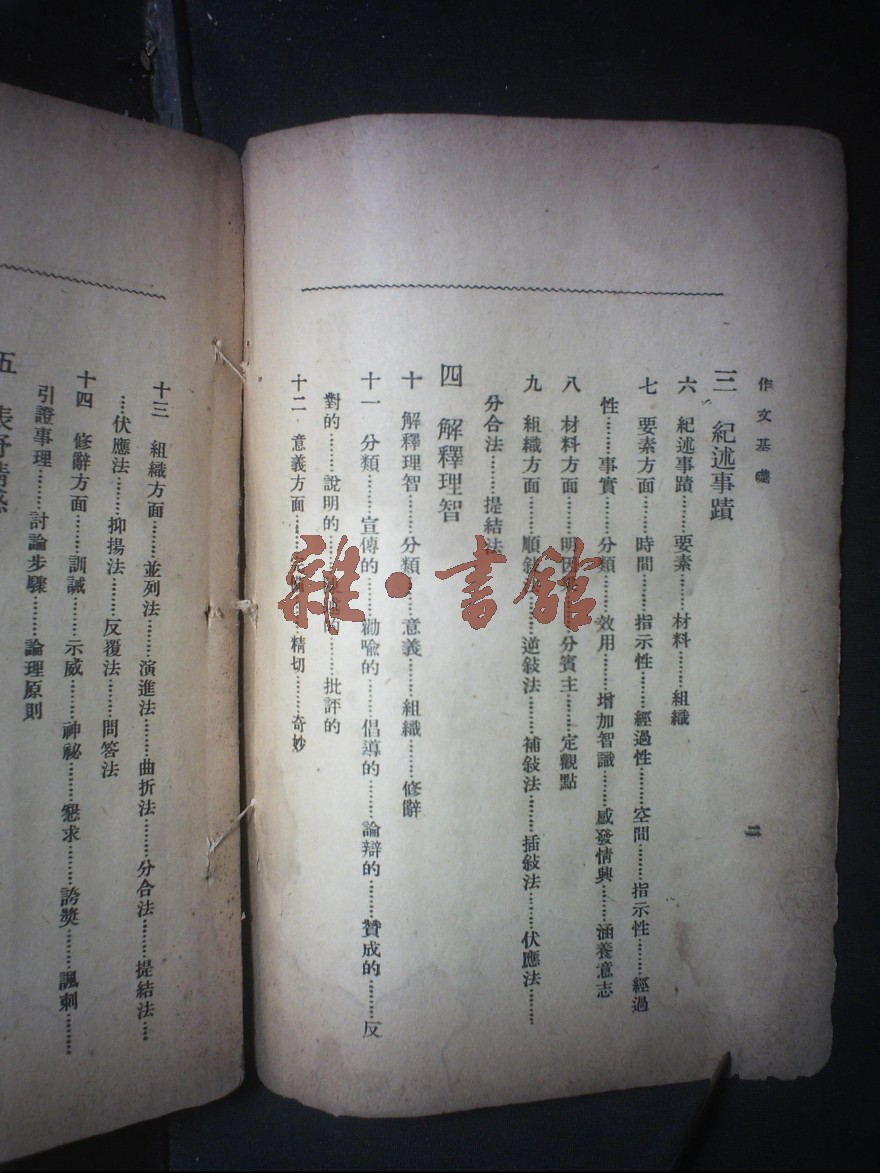 作文基礎
三 紀述事蹟
六 紀述事蹟………要素………材料………組織
七 要素方面………時間………指示性………經過性………空間………指示性………經過
性………事實………分類………效用………增加智識………感發情興………涵養意志
八 材料方面………明因果………分賓主………定觀點
九 組織方面………順敍法………逆敍法………補敍法………插敍法………伏應法………
分合法………提結法
四 解釋理智
十 解釋理智………分類………意義………組織………修辭
十一 分類………宣傳的………勸喩的………倡導的………論辯的………贊成的………反
對的………說明的………的………批評的
十二 意義方面………精切………奇妙
二
雜·書館
十三 組織方面………並列法………演進法………曲折法………分合法………提結法……
……伏應法………抑揚法………反覆法………問答法
十四 修辭方面………訓誡………示威………神祕………懇求………誇獎………諷刺………
引證事理………討論步驟………論理原則
五 表抒情感